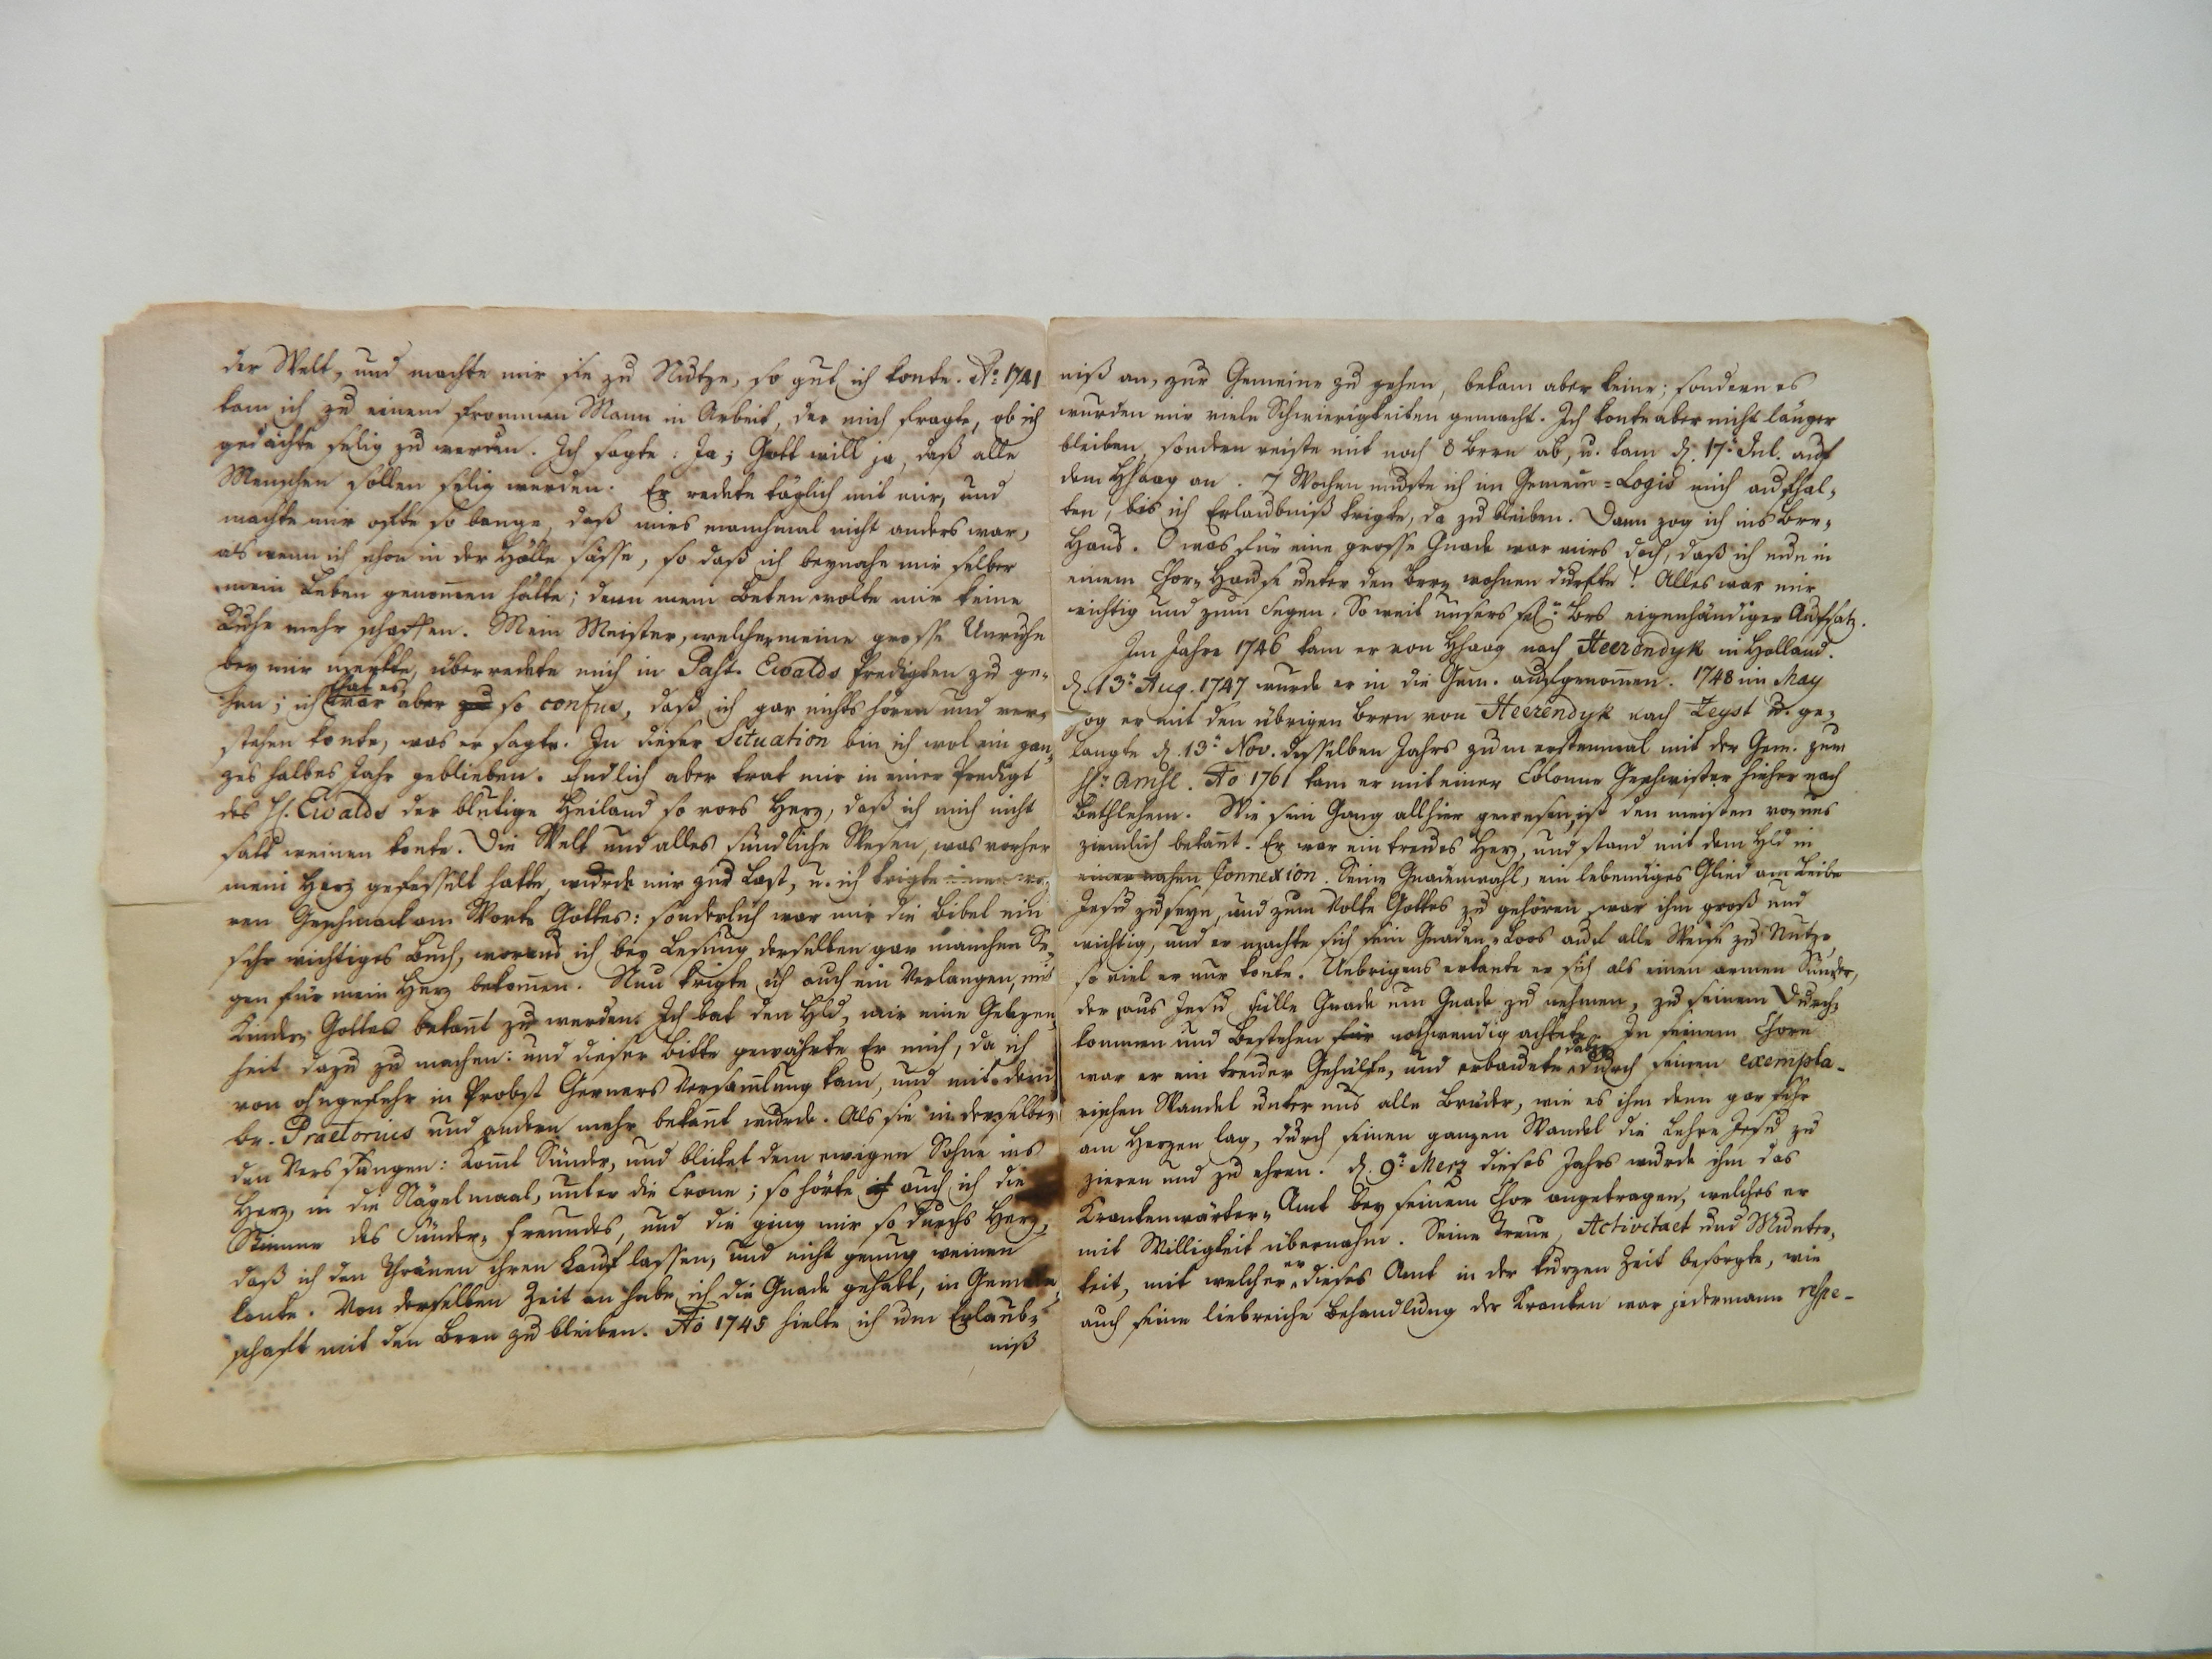 der Welt, und machte mir sie zu Nutze, so gut ich konte. Ao. 1741
kam ich zu einem frommen Mann in Arbeit, der mich fragte, ob ich
gedächte selig zu werden. Ich sagte: Ja; Gott will ja, daß alle
Menschen sollen selig werden. Er redete täglich mit mir, und
machte mir ofte so bange, daß mirs manchmal nicht anders war,
als wenn ich schon in der Hölle sässe, so daß ich beynahe mir selber
mein Leben genom̄en hätte; denn mein Beten wolte mir keine
Ruhe mehr schaffen. Mein Meister, welcher meine grosse Unruhe
bey mir merkte, überredete mich in Past. Ewalds Predigten zu ge-
that es,
hen; ich war aber zu so confus, daß ich gar nichts hören und ver-
stehen konte, was er sagte. In dieser Situation bin ich wol ein gan-
zes halbes Jahr geblieben. Endlich aber trat mir in einer Predigt
des H. Ewalds der blutige Heiland so vors Herz, daß ich mich nicht
satt weinen konte. Die Welt und alles sündliche Wesen, was vorher
mein Herz gefesselt hatte, wurde mir zur Last, u. ich krigte einen wah-
ren Geschmack am Worte Gottes: sonderlich war mir die Bibel ein
sehr wichtiges Buch, woraus ich bey Lesung derselben gar manchen Se-
gen für mein Herz bekom̄en. Nun krigte ich auch ein Verlangen, mit
Kindern Gottes bekan̄t zu werden. Ich bat den Hld, mir eine Gelegen-
heit dazu zu machen: und dieser Bitte gewährte Er mich, da ich
von ohngefehr in Probst Gerners Versam̄lung kam, und mit dem
Br. Praetorius und andern mehr bekan̄t wurde. Als sie in derselben
den Vers sungen: Kom̄t Sünder, und blicket dem ewigen Sohne ins
Herz, in die Nägelmaal, unter die Crone; so hörte ich auch ich die
Stimme des Sünder-Freundes, und die ging mir so durchs Herz,
daß ich den Thränen ihren Lauf lassen, und nicht genug weinen
konte. Von derselben Zeit an habe ich die Gnade gehabt, in Gemein-
schaft mit den Brrn zu bleiben. Ao 1745 hielte ich um Erlaub-
niß
niß an, zur Gemeine zu gehen, bekam aber keine; sondern es
wurden mir viele Schwierigkeiten gemacht. Ich konte aber nicht länger
bleiben, sondern reiste mit noch 8 Brrn ab, u. kam d. 17n Jul. auf
dem Hhaag an. 7 Wochen muste ich im Gemein-Logis mich aufhal-
ten, bis ich Erlaubniß krigte, da zu bleiben. Dann zog ich ins Brr-
Haus. O was für eine grosse Gnade war mirs doch, daß ich nun in
einem Chor-Hause unter den Brrn wohnen durfte! Alles war mir
wichtig und zum Segen. So weit unsers sel. Brs eigenhändiger Aufsatz.
Im Jahre 1746 kam er von Hhaag nach Heerendyk in Holland.
d. 13n Aug. 1747 wurde er in die Gem. aufgenom̄en. 1748 im May
zog er mit den übrigen Brrn von Heerendyk nach Zeyst u. ge-
langte d. 13n Nov. desselben Jahrs zum erstenmal mit der Gem. zum
Hn. Abhl. Ao 1761 kam er mit einer Colonne Geschwister hieher nach
Bethlehem. Wie sein Gang allhier gewesen, ist den meisten von uns
ziemlich bekan̄t. Er war ein treues Herz, und stand mit dem Hld in
einer nahen Connexion. Seine Gnadenwahl, ein lebendiges Glied am Leibe
Jesu zu seyn, und zum Volke Gottes zu gehören, war ihm groß und
wichtig, und er machte sich sein Gnaden-Loos auf alle Weise zu Nutze,
so viel er nur konte. Uebrigens erkante er sich als einen armen Sünder,
der aus Jesu Fülle Gnade um Gnade zu nehmen, zu seinem Durch-
kommen und Bestehen für nothwendig achtete. In seinem Chore
war er ein treuer Gehülfe, und erbauete durch seinen exempla-
rischen Wandel unter uns alle Brüder, wie es ihm denn gar sehr
am Herzen lag, durch seinen ganzen Wandel die Lehre Jesu zu
zieren und zu ehren. d. 9n Merz dieses Jahrs wurde ihm das
Krankenwärter-Amt bey seinem Chor angetragen, welches er
mit Willigkeit übernahm. Seine Treue, Activitaet und Munter-
er
keit, mit welcher dieses Amt in der kurzen Zeit besorgte, wie
auch seine liebreiche Behandlung der Kranken war jedermann respe-